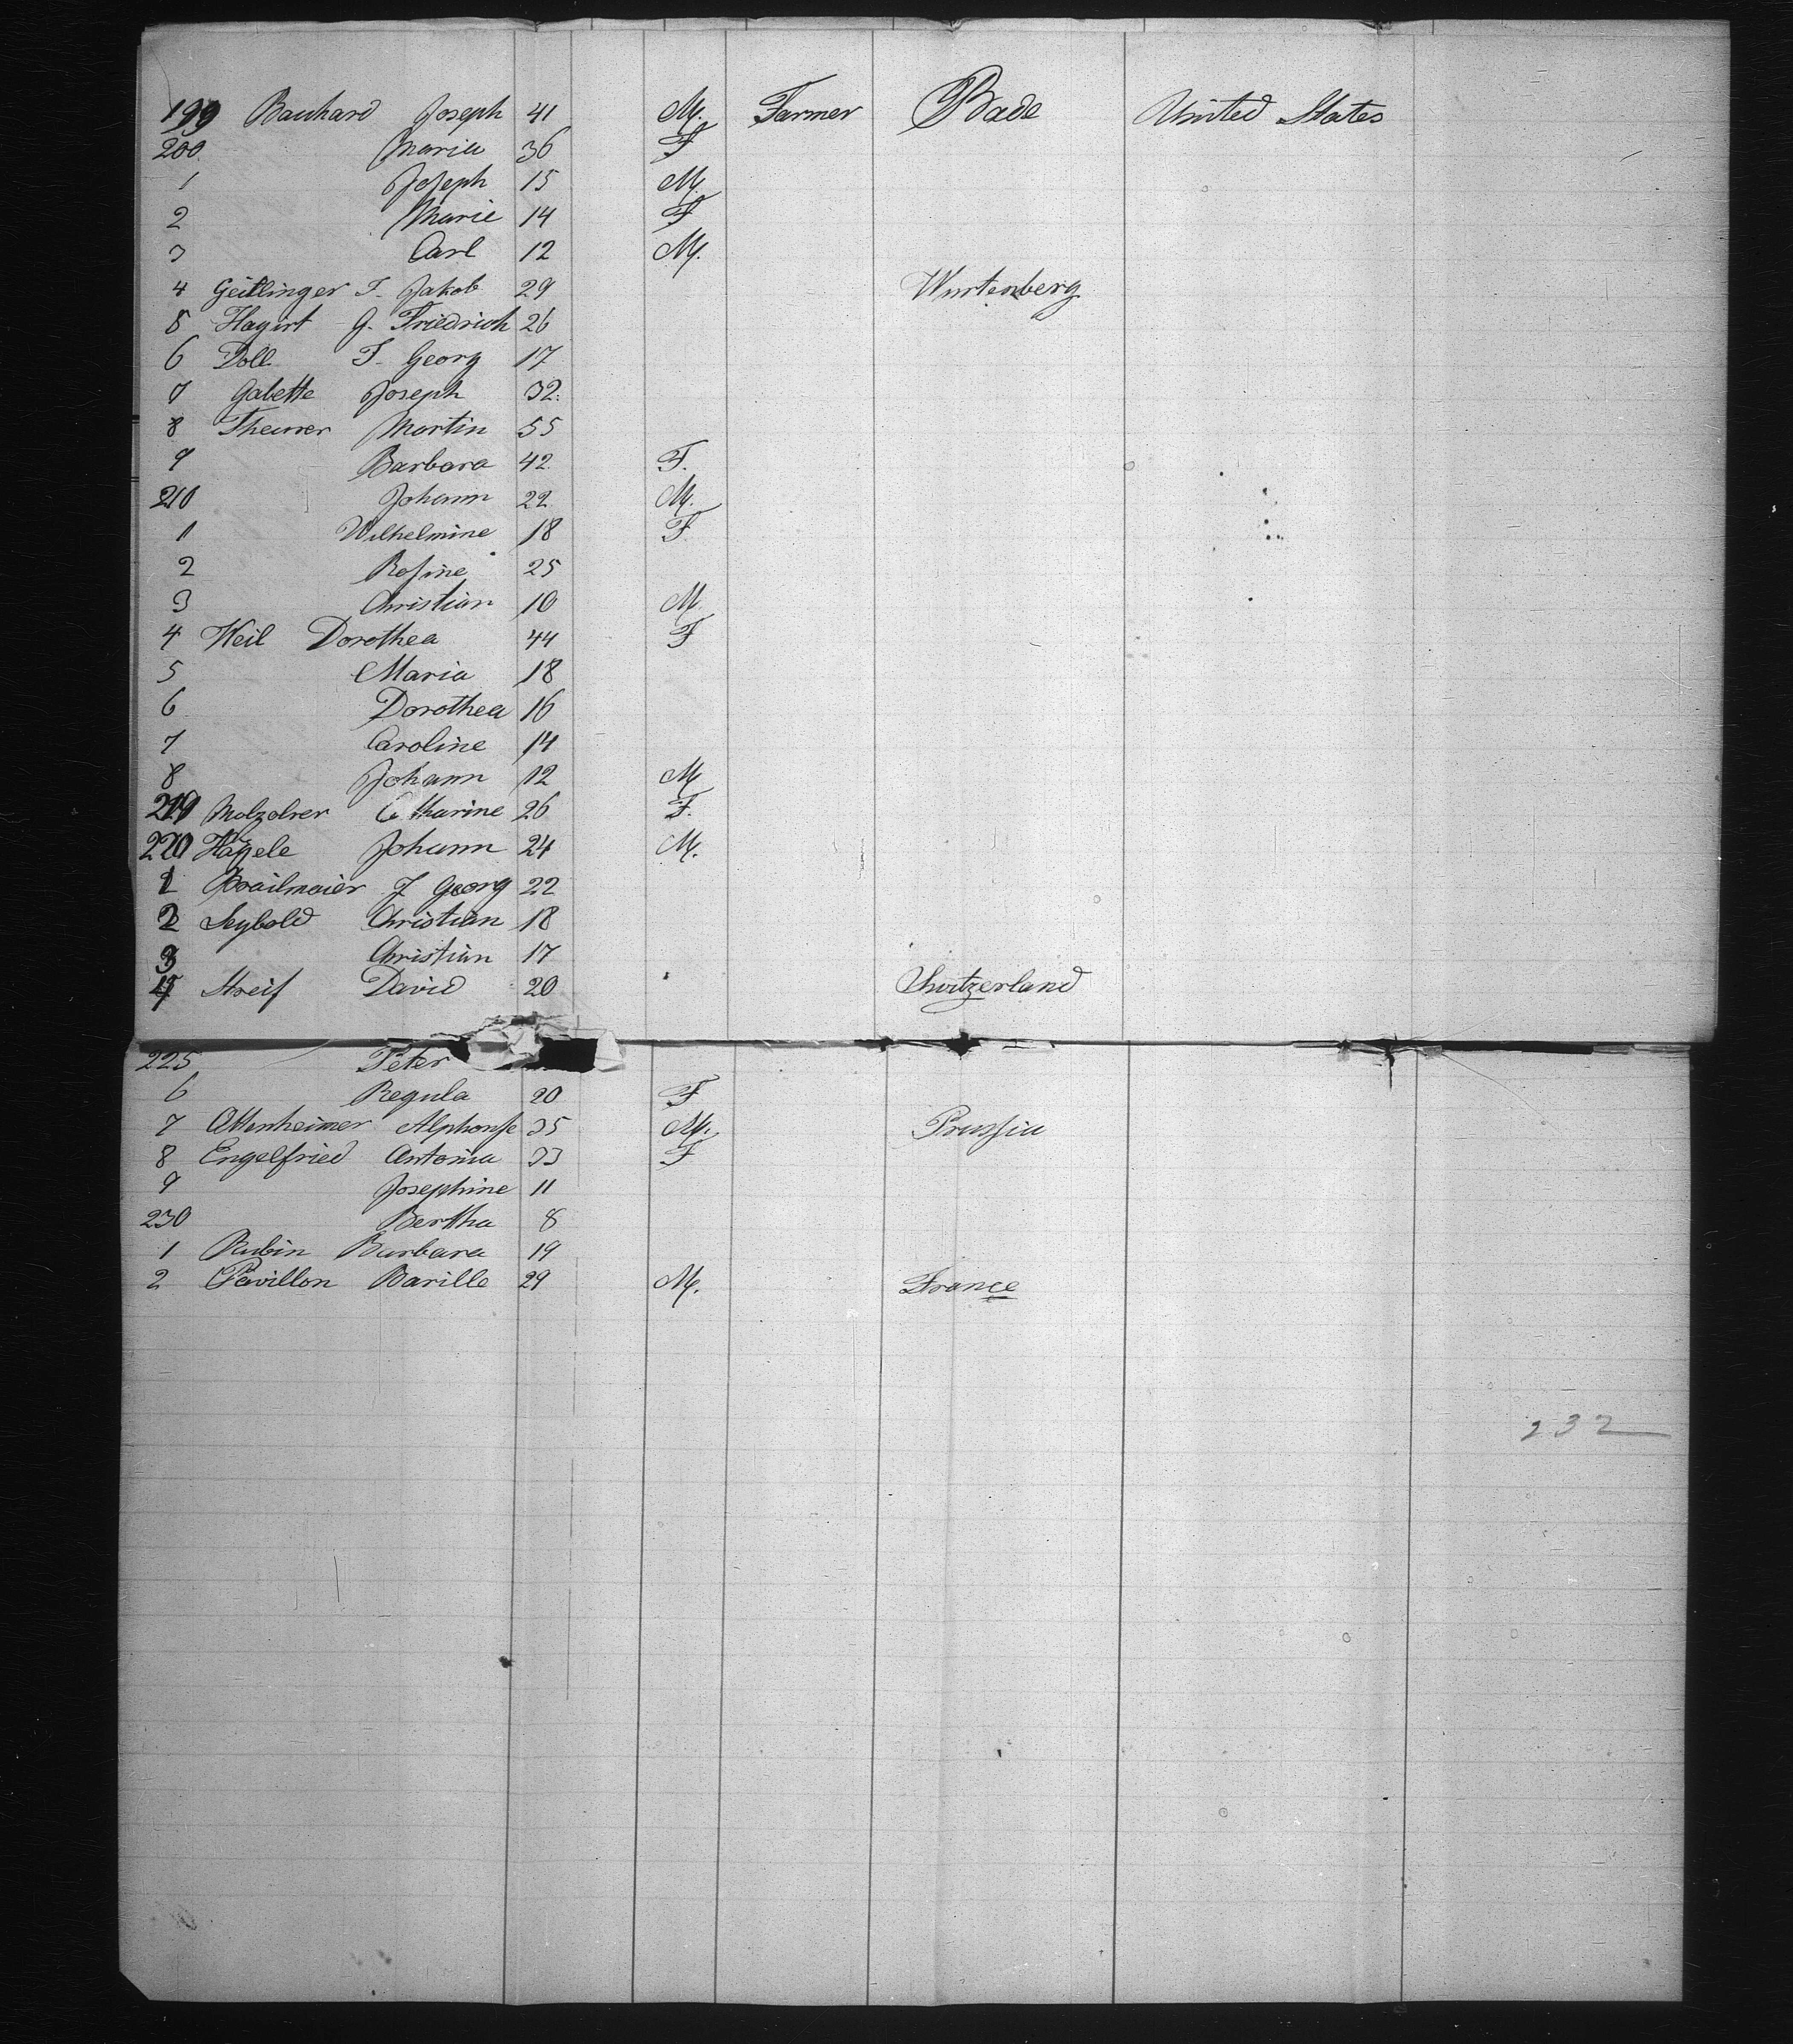 199 Bauhard Joseph 41 M. Farmer Bade United States
200 Maria 36 F
1 Joseph 15 M.
2 Marie 14 F
3 Carl 12 M.
4 Geitlinger J. Jakob 29 Wurtenberg
5 Hagirt G. Friedrich 26
6 Doll J. Georg 17
7 Gabette Joseph 32
8 Theurer Martin 55
9 Barbara 42 F.
210 Johann 22 M.
1 Wilhelmine 18 F
2 Rosine 25
3 Christian 10 M.
4 Weil Dorothea 44 F
5 Maria 18
6 Dorothea 16
7 Caroline 14
8 Johann 12 M
219 Catharine 26 F.
220 Hägele Johann 24 M.
1 Brailmaier J Georg 22
2 Seybold Christian 18
3 Christian 17
4 Streif David 20 Switzerland
225 Peter
6 Regula 20 F
7 Attenheimer Alphonse 35 M. Prussia
8 Engelfried Antonia 33 F
9 Josephine 11
230 Bertha 8
1 Rubin Barbara 19
2 Pavillon Barille 29 M. France
232